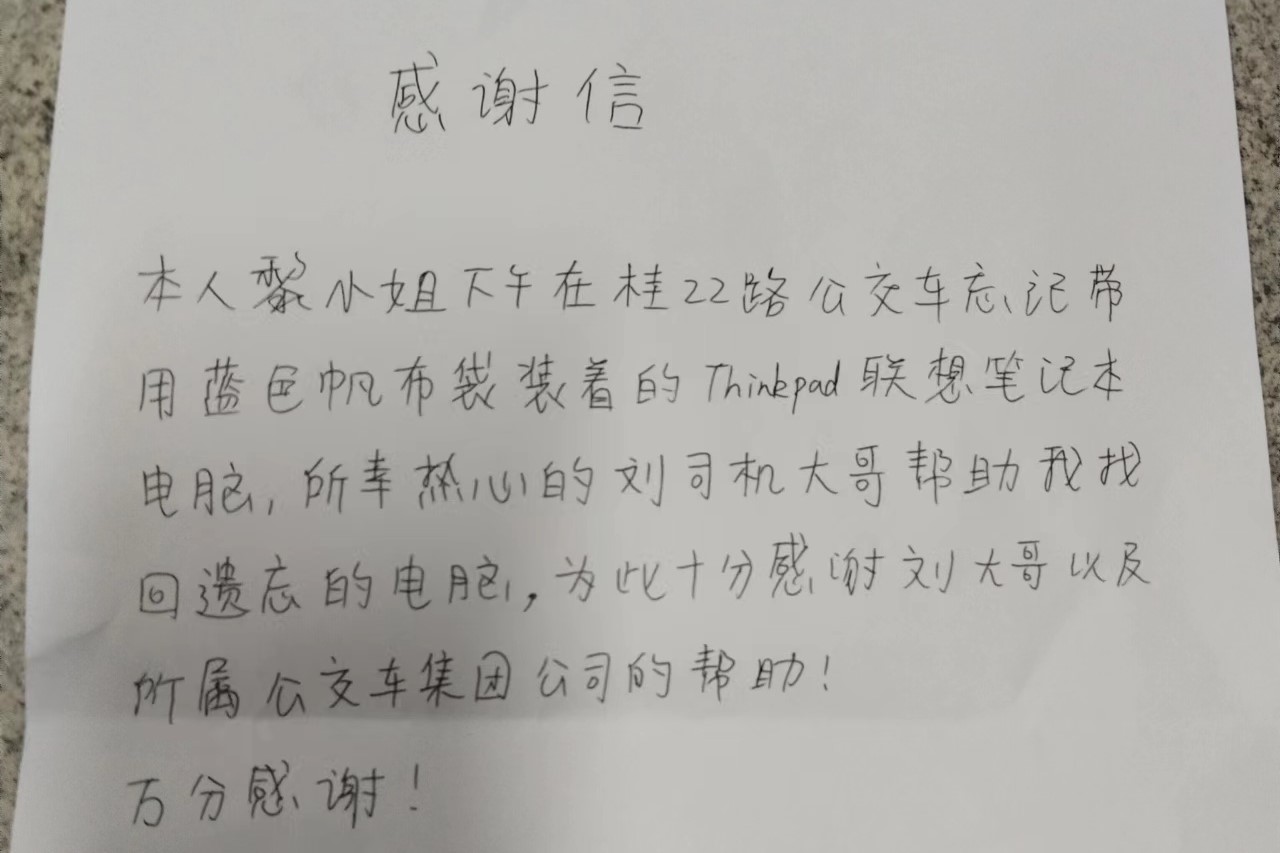 感谢信
本人黎小姐下午在桂22路公交车忘记带
用蓝色帆布袋装着的Thinkpad联想笔记本
电脑,所幸热心的刘司机大哥帮助我找
回遗忘的电脑,为此十分感谢刘大哥以及
所属公交车集团公司的帮助!
万分感谢!